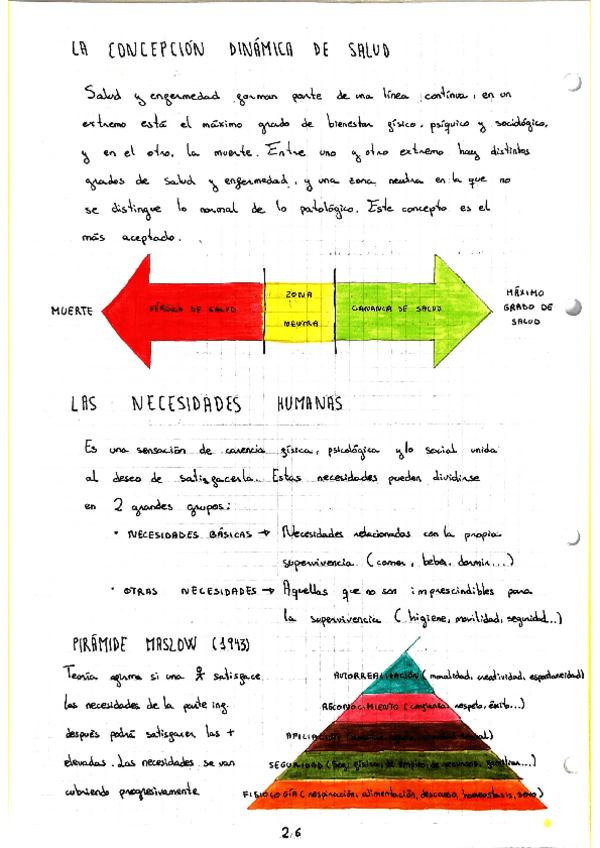 LA CONCEPCIÓN DINÁMICA DE SALUD
Salud y enfermedad forman parte de una línea continua, en un
extremo está el máximo grado de bienestar físico, psíquico y sociológico,
y en el otro, la muerte. Entre uno y otro extremo hay distintos
grados de salud y enfermedad, y una zona neutra en la que no
se distingue lo normal de lo patológico. Este concepto es el
más aceptado.
MUERTE
PÉRDIDA DE SALUD
ZONA
NEUTRA
GANANCIA DE SALUD
MÁXIMO
GRADO DE
SALUD
LAS NECESIDADES HUMANAS
Es una sensación de carencia física, psicológica y/o social unida
al deseo de satisfacerla. Estas necesidades pueden dividirse
en 2 grandes grupos:
· NECESIDADES BÁSICAS → Necesidades relacionadas con la propia
supervivencia. (comer, beber, dormir...)
· OTRAS NECESIDADES → Aquellas que no son imprescindibles para
la supervivencia (higiene, movilidad, seguridad...)
PIRÁMIDE MASLOW (1943)
Teoría afirma si una satisface
las necesidades de la parte inf.
después podrá satisfacer las +
elevadas. Las necesidades se van
cubriendo progresivamente
AUTORREALIZACIÓN (moralidad, creatividad, espontaneidad)
RECONOCIMIENTO (confianza, respeto, éxito...)
AFILIACIÓN
SEGURIDAD (Seg. física, de empleo, de recursos, familiar...)
FISIOLOGÍA (respiración, alimentación, descanso, homeostasis, sexo)
2/6